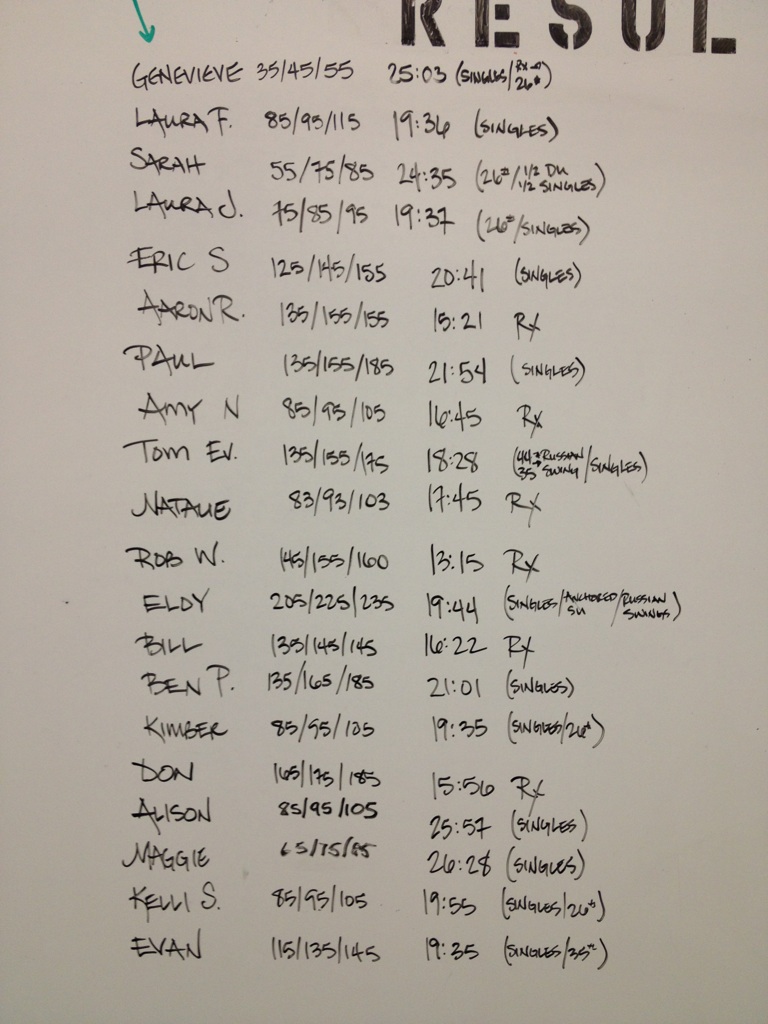 RESUL
GENEVIEVE 35/45/55 25:03 (SINGLES/RX→26#)
LAURA F. 85/95/115 19:36 (SINGLES)
SARAH 55/75/85 24:35 (26#/1/2 DU 1/2 SINGLES)
LAURA J. 75/85/95 19:37 (26#/SINGLES)
ERIC S 125/145/155 20:41 (SINGLES)
AARON R. 135/155/155 15:21 Rx
PAUL 135/155/185 21:54 (SINGLES)
AMY N 85/95/105 16:45 Rx
TOM EV. 135/155/175 18:28 (44#→35# RUSSIAN SWING/SINGLES)
NATALIE 83/93/103 17:45 Rx
ROB W. 145/155/160 13:15 Rx
ELOY 205/225/235 19:44 (SINGLES/ANCHORED SU/RUSSIAN SWINGS)
BILL 135/145/145 16:22 Rx
BEN P. 135/165/185 21:01 (SINGLES)
KIMBER 85/95/105 19:35 (SINGLES/26#)
DON 165/175/185 15:56 Rx
ALISON 85/95/105 25:57 (SINGLES)
MAGGIE 65/75/85 26:28 (SINGLES)
KELLI S. 85/95/105 19:55 (SINGLES/26#)
EVAN 115/135/145 19:35 (SINGLES/35#)